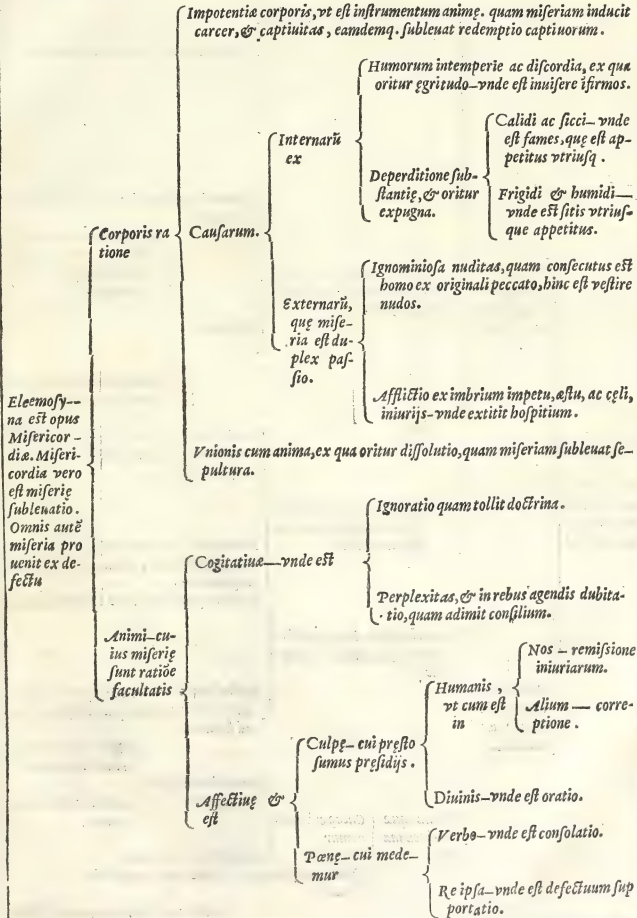 Eleemosy--
na est opus
Misericor-
diæ. Miseri-
cordia vero
est miserię
subleuatio.
Omnis autē
miseria pro
uenit ex de-
fectu
Corporis ra
tione
Impotentiæ corporis, vt est instrumentum animę. quam miseriam inducit
carcer, & captiuitas, eamdemq. subleuat redemptio captiuorum.
Causarum.
Internarū
ex
Humorum intemperie ac discordia, ex qua
oritur ęgritudo—vnde est inuisere īfirmos.
Deperditione sub-
stantię, & oritur
expugna.
Calidi ac sicci—vnde
est fames, quę est ap-
petitus vtriusq.
Frigidi & humidi—
vnde est sitis vtrius-
que appetitus.
Externarū,
quę mise-
ria est du-
plex pas-
sio.
Ignominiosa nuditas, quam consecutus est
homo ex originali peccato, hinc est vestire
nudos.
Afflictio ex imbrium impetu, æstu, ac cęli,
iniurijs—vnde extitit hospitium.
Vnionis cum anima, ex qua oritur dissolutio, quam miseriam subleuat se-
pultura.
Animi—cu-
ius miserię
sunt ratiōe
facultatis
Cogitatiuæ—vnde est
Ignoratio quam tollit doctrina.
Perplexitas, & in rebus agendis dubita-
tio, quam adimit consilium.
Affectiuę &
est
Culpę—cui pręsto
sumus pręsidijs.
Humanis,
vt cum est
in
Nos — remissione
iniuriarum.
Alium — corre-
ptione.
Diuinis—vnde est oratio.
Pœnę—cui mede-
mur
Verbo—vnde est consolatio.
Re ipsa—vnde est defectuum sup
portatio.